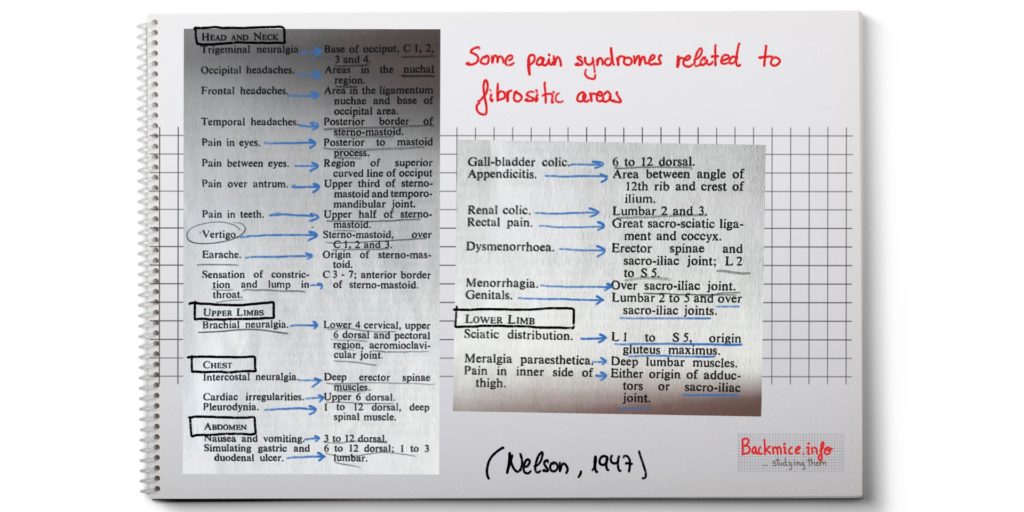 HEAD AND NECK
Trigeminal neuralgia Base of occiput, C 1, 2,
3 and 4.
Occipital headaches. Areas in the nuchal
region.
Frontal headaches. Area in the ligamentum
nuchae and base of
occipital area.
Temporal headaches. Posterior border of
sterno-mastoid.
Pain in eyes. Posterior to mastoid
process.
Pain between eyes. Region of superior
curved line of occiput
Pain over antrum. Upper third of sterno-
mastoid and temporo-
mandibular joint.
Pain in teeth. Upper half of sterno-
mastoid.
Vertigo. Sterno-mastoid, over
C 1, 2 and 3.
Earache. Origin of sterno-mas-
toid.
Sensation of constric- C 3 - 7; anterior border
tion and lump in of sterno-mastoid.
throat.
UPPER LIMBS
Brachial neuralgia. Lower 4 cervical, upper
6 dorsal and pectoral
region, acromioclavi-
cular joint.
CHEST
Intercostal neuralgia. Deep erector spinae
muscles.
Cardiac irregularities. Upper 6 dorsal.
Pleurodynia. 1 to 12 dorsal, deep
spinal muscle.
ABDOMEN
Nausea and vomiting. 3 to 12 dorsal.
Simulating gastric and 6 to 12 dorsal; 1 to 3
duodenal ulcer. lumbar.
Some pain syndromes related to
fibrositic areas
Gall-bladder colic. 6 to 12 dorsal.
Appendicitis. Area between angle of
12th rib and crest of
ilium.
Renal colic. Lumbar 2 and 3.
Rectal pain. Great sacro-sciatic liga-
ment and coccyx.
Dysmenorrhoea. Erector spinae and
sacro-iliac joint; L 2
to S 5.
Menorrhagia. Over sacro-iliac joint.
Genitals. Lumbar 2 to 5 and over
sacro-iliac joints.
LOWER LIMB
Sciatic distribution. L 1 to S 5, origin
gluteus maximus.
Meralgia paraesthetica. Deep lumbar muscles.
Pain in inner side of Either origin of adduc-
thigh. tors or sacro-iliac
joint.
(Nelson, 1947)
Backmice.info
... studying them